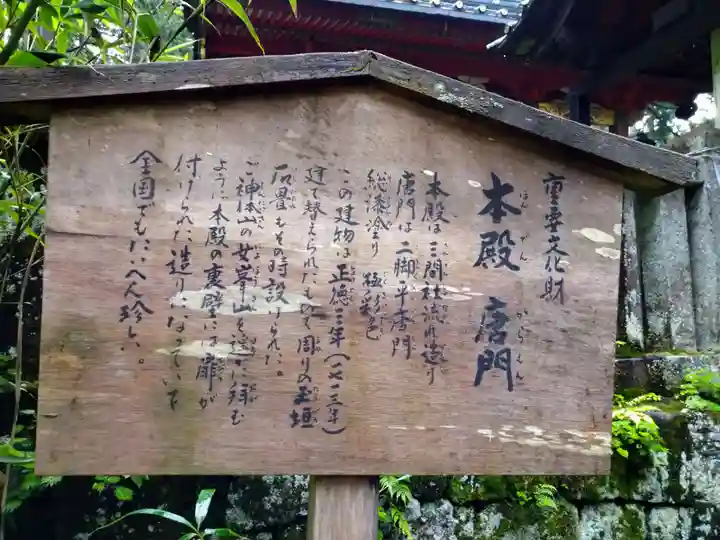 重要文化財
本殿 唐門
ほんでん からもん
本殿は三間社流れ造り
唐門は一脚平唐門
総漆塗り 極彩色
この建物は正徳三年(一七一三年)
建て替えられたもので周りの玉垣
石畳もその時設けられた。
ご神体山の女峯山を遥に拝む
ように本殿の裏壁には扉が
付けられた造りになっていて
全国でもたいへん珍しい。